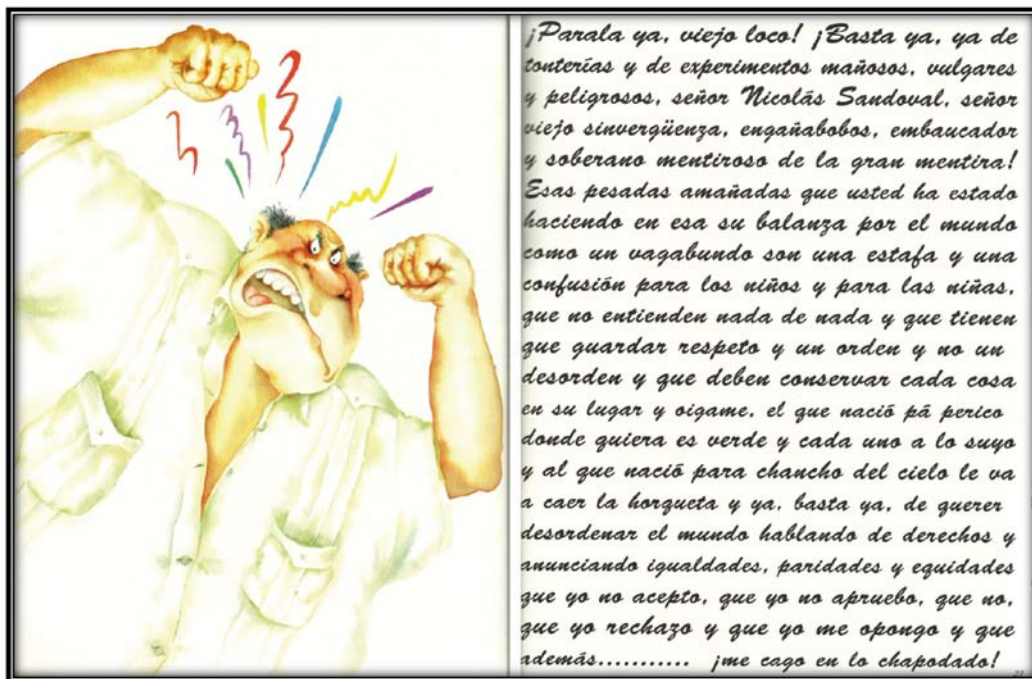 ¡Parala ya, viejo loco! ¡Basta ya, ya de
tonterías y de experimentos mañosos, vulgares
y peligrosos, señor Nicolás Sandoval, señor
viejo sinvergüenza, engañabobos, embaucador
y soberano mentiroso de la gran mentira!
Esas pesadas amañadas que usted ha estado
haciendo en esa su balanza por el mundo
como un vagabundo son una estafa y una
confusión para los niños y para las niñas,
que no entienden nada de nada y que tienen
que guardar respeto y un orden y no un
desorden y que deben conservar cada cosa
en su lugar y oigame, el que nació pá perico
donde quiera es verde y cada uno a lo suyo
y al que nació para chancho del cielo le va
a caer la horqueta y ya, basta ya, de querer
desordenar el mundo hablando de derechos y
anunciando igualdades, paridades y equidades
que yo no acepto, que yo no apruebo, que no,
que yo rechazo y que yo me opongo y que
además........... ¡me cago en lo chapodado!